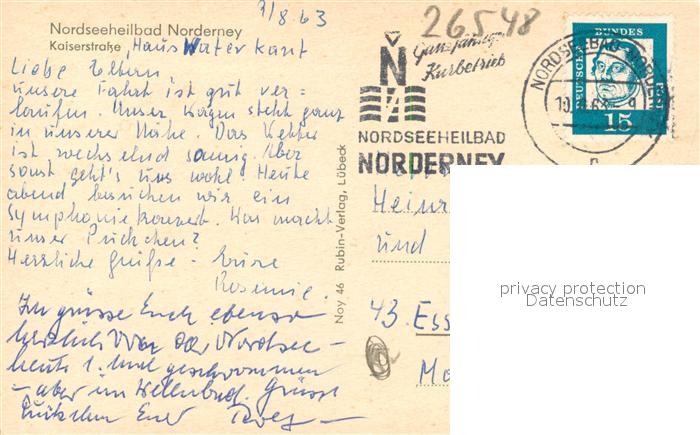 9/8.63
26548
Nordseeheilbad Norderney
Kaiserstraße, Haus Waterkant
Liebe Eltern!
unsere Fahrt ist gut ver=
laufen. Unser Wagen steht ganz
in unserer Nähe. Das Wetter
ist wechselnd sonnig. Aber
sonst geht's uns wohl. Heute
abend besuchen wir ein
Symphoniekonzert. Was macht
unser Puckchen?
Herzliche Grüße - Eure
Rosemie.
Ich grüsse Euch ebenso
herzlich von der Nordsee -
heute 1. mal geschwommen
- aber im Wellenbad. Grüsst
Euer
Noy 46 Rubin-Verlag, Lübeck
Ganzjähriger
Kurbetrieb
N
NORDSEEHEILBAD
NORDERNEY
DEUTSCHE BUNDES
15
NORDSEEHEILBAD NORDERNEY
Heinr
und
43. Ess
privacy protection
Datenschutz